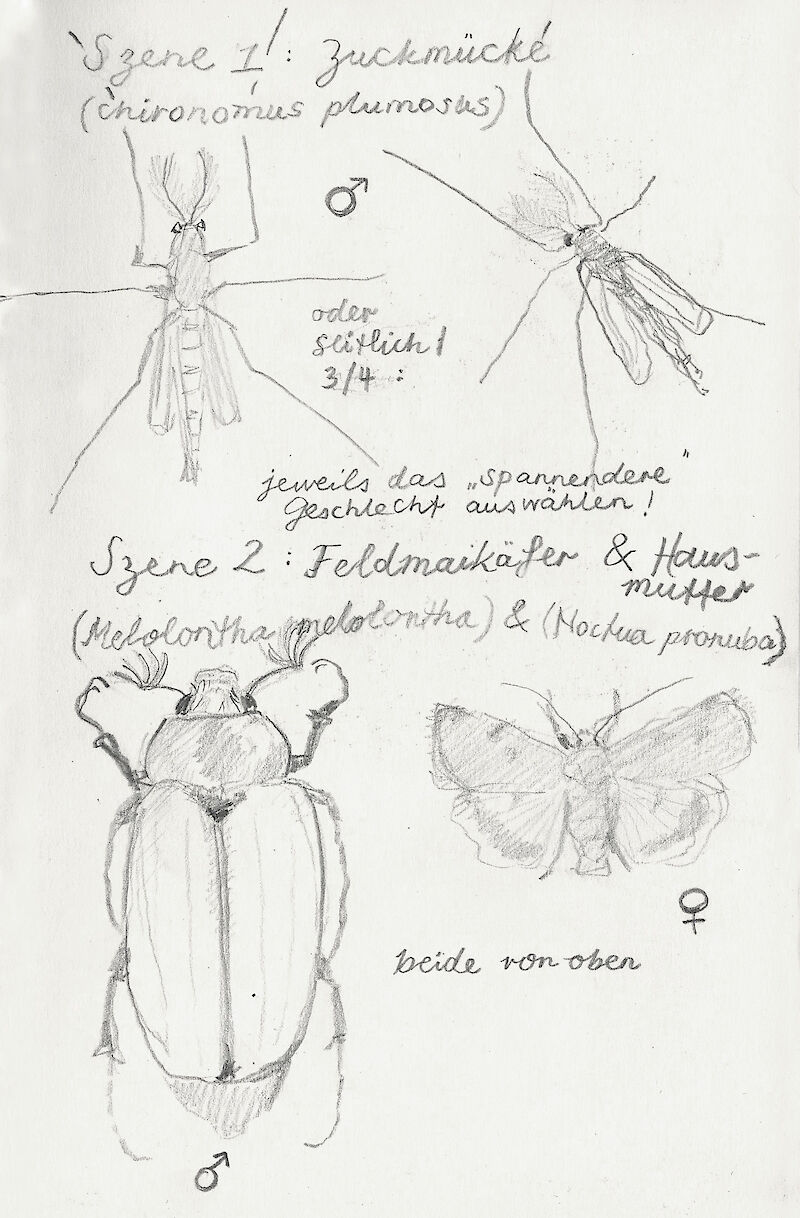 Szene 1: Zuckmücke
(chironomus plumosus)
♂
oder
seitlich/
3/4 :
jeweils das „spannendere"
Geschlecht auswählen!
Szene 2: Feldmaikäfer & Haus-
mutter
(Melolontha melolontha) & (Noctua pronuba)
♀
beide von oben
♂